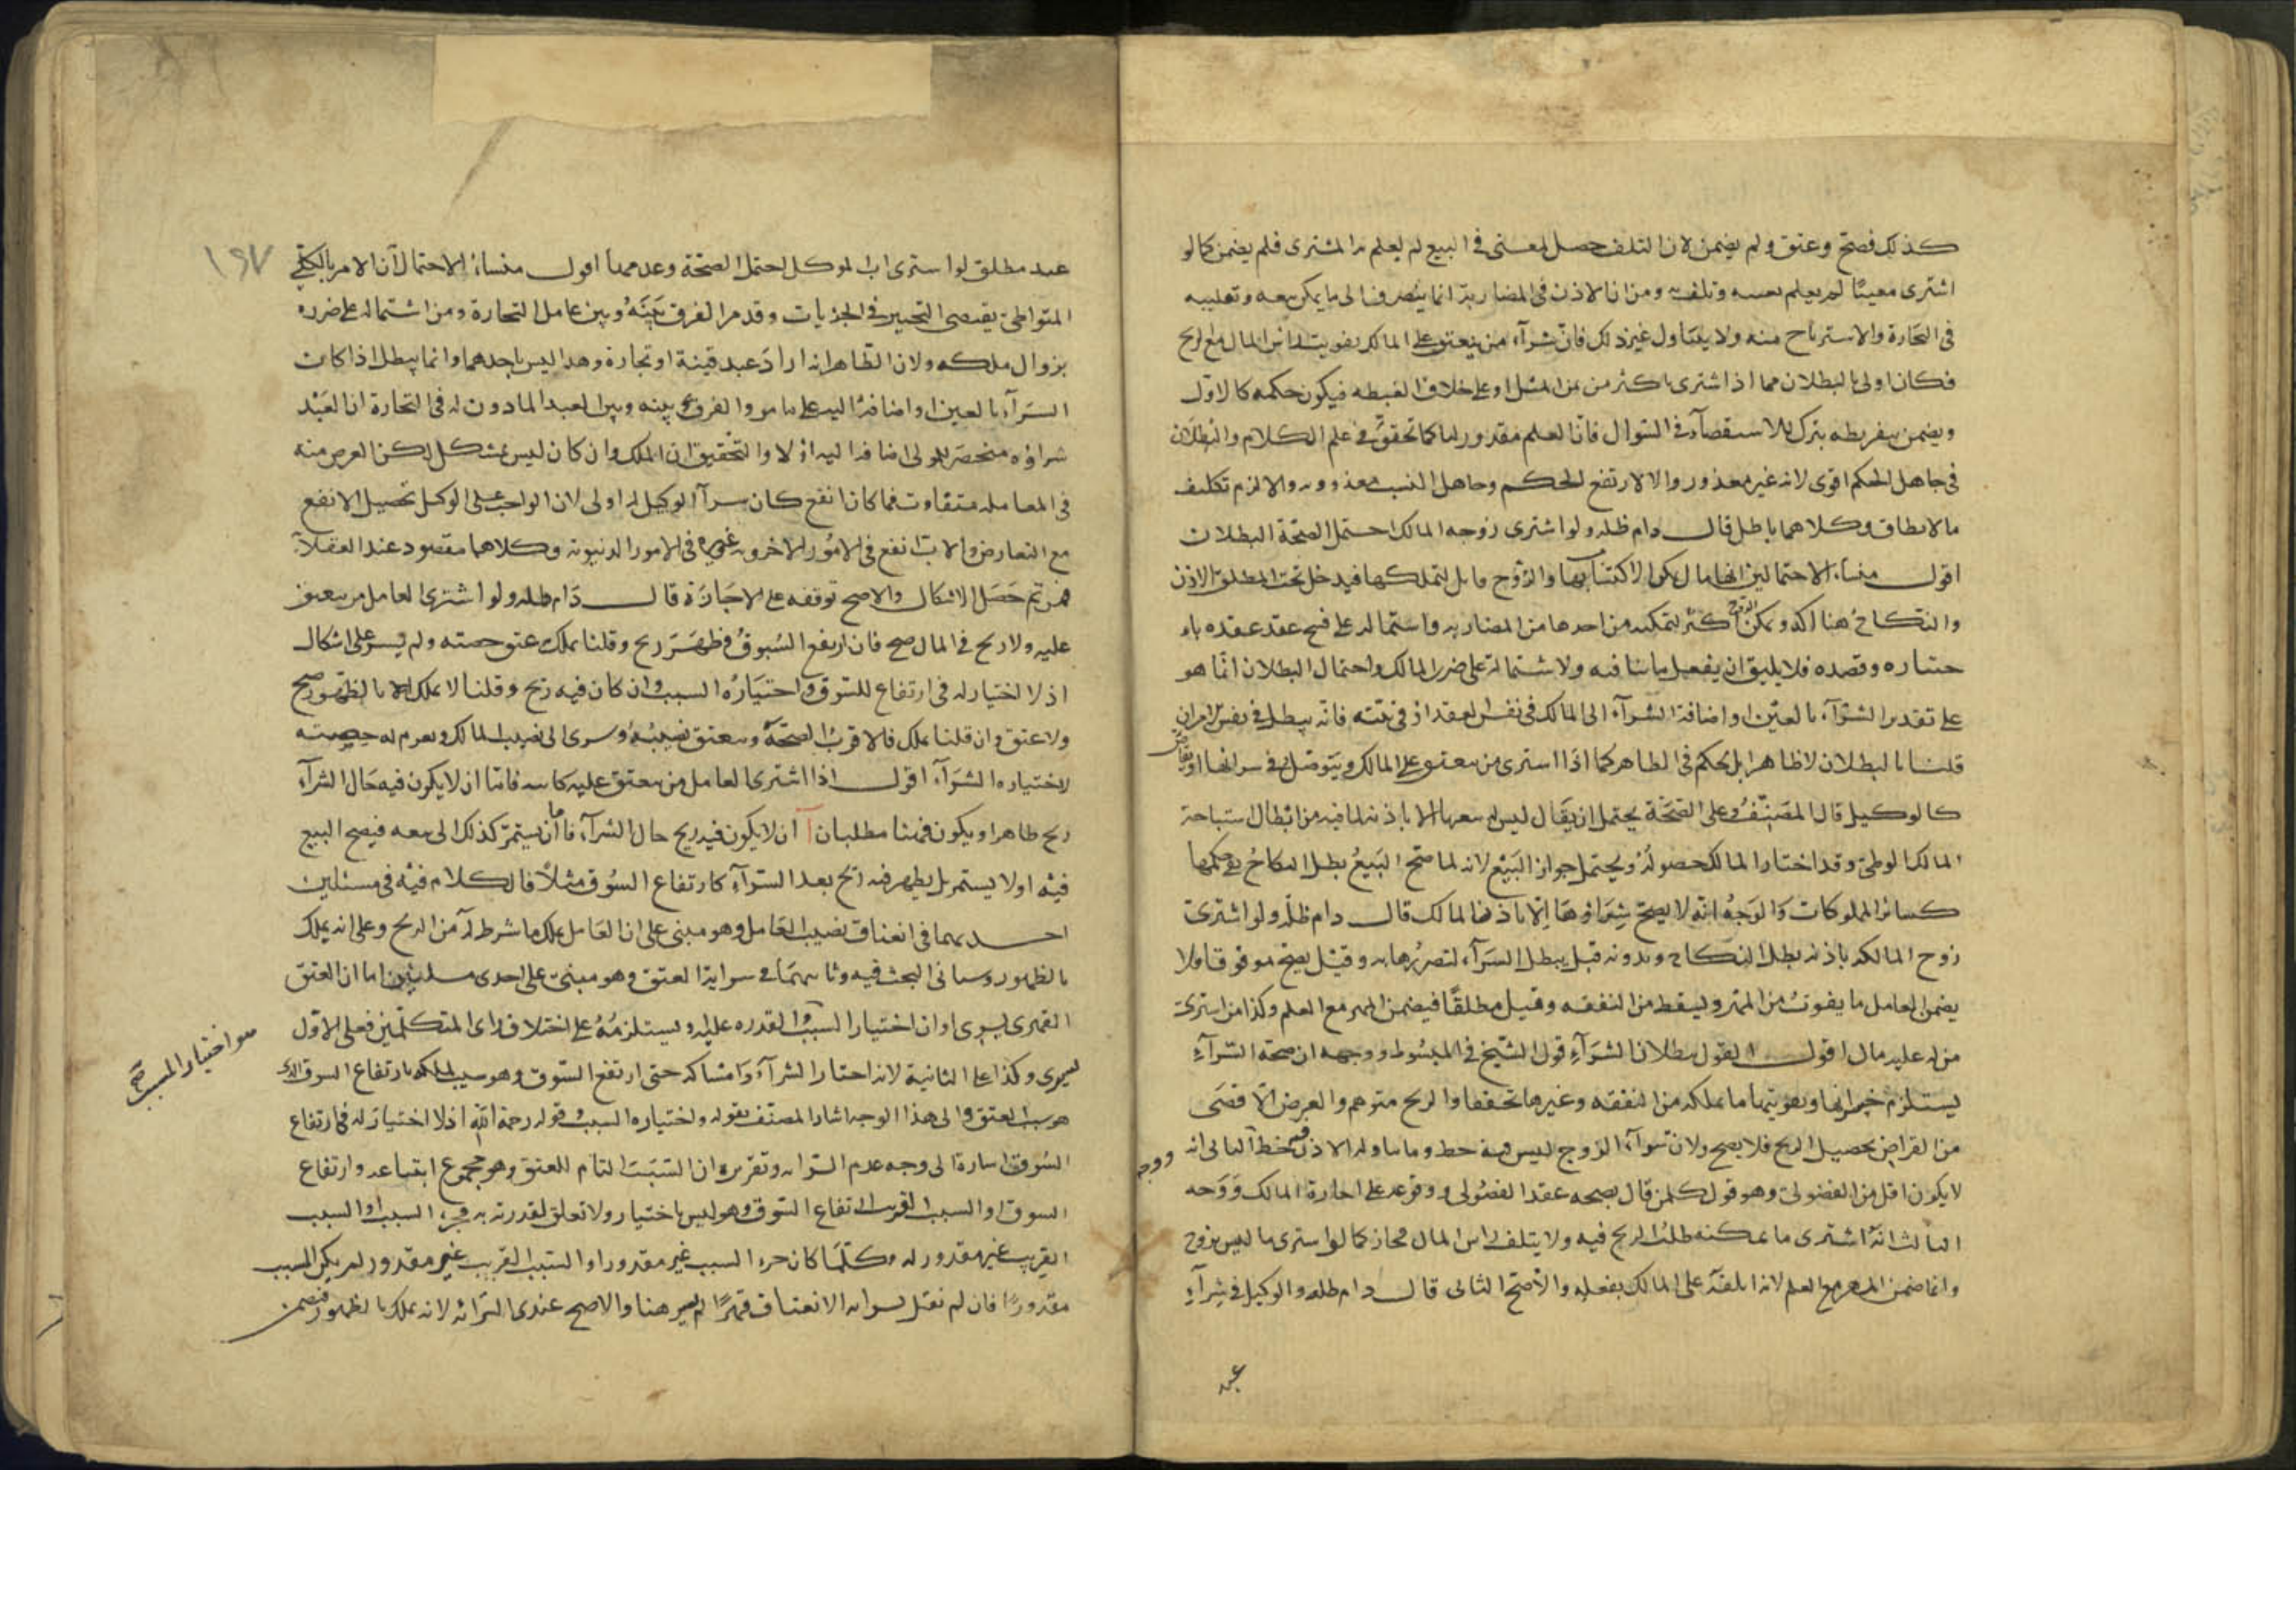 كذلك فصح وعتق ولم يضمن لان التلف حصل لمعنى في البيع لم يعلم به المشترى فلم يضمن كما لو
اشترى معيبًا لم يعلم بعيبه وتلف به ومن ان الاذن في المضاربة انما ينصرف الى ما يمكن بيعه وتقليبه
في التجارة والاسترباح منه ولا يتناول غير ذلك فان شرآء من ينعتق على المالك تفويت لراس المال مع الربح
فكان اولى بالبطلان مما اذا اشترى باكثر من ثمن المثل او على خلاف الغبطه فيكون حكمه كالاول
ويضمن بتفريطه بترك الاستقصآء في السوال فان العلم مقدور لنا كما تحقق في علم الكلام والبطلان
في جاهل الحكم اقوى لانه غير معذور والا لارتفع الحكم وجاهل النسب معذور والا لزم تكليف
ما لا يطاق وكلاهما باطل قال دام ظله ولو اشترى زوجه المالك احتمل الصحة البطلان
اقول منشاء الاحتمالين انها مال يمكن الاكتساب بها والزوج قابل لتملكها فيدخل تحت المطلق الاذن
والنكاح هنا اكد ويمكن الزوج اكثر لتمكنه من احدها من المضاربه واشتماله على فسخ عقد عقده باخ
ختياره وقصده فلا يليق ان يفعل ما ينافيه ولاشتماله على ضرر المالك واحتمال البطلان انما هو
على تقدير الشرآء بالعين او اضافة الشرآء الى المالك في نفس العقد او في نيته فانه يبطل في نفس الامر ان
قلنا بالبطلان لا ظاهرا بل يحكم في الظاهر كما اذا اشترى من ينعتق على المالك ويتوصل في شرائها او يقاص
كالوكيل قال المصنف وعلى الصحة يحتمل ان يقال ليس له بيعها الا باذنه لما فيه من ابطال استباحة
المالك الوطئ وقد اختار المالك حصوله ويحتمل جواز البيع لانه لما صح البيع بطل النكاح بقى حكمها
كسائر المملوكات والوجه انه لا يصح شراؤها الا باذن المالك قال دام ظله ولو اشترى
زوج المالكه باذنه بطل النكاح وبدونه قيل يبطل الشرآء لتضررها به وقيل يصح موقوفا ولا
يضمن العامل ما يفوت من المهر ويسقط من النفقه وقيل مطلقًا فيضمن المهر مع العلم وكذا من اشترى
من له عليه مال اقول القول ببطلان الشرآء قول الشيخ في المبسوط ووجهه ان صحة الشرآء
يستلزم خسرانها وتفويتها ما تملكه من النفقه وغيرها تحققا والربح متوهم والغرض الاقصى
من القراض تحصيل الربح فلا يصح ولان شرآء الزوج ليس فيه حظ وما يتناوله الاذن فيه حظ الثانى انه
لا يكون اقل من الفضولى وهو قول كل من قال بصحه عقد الفضولى ووقوعه على اجازة المالك ووجه
الثالث انه اشترى ما يمكنه طلب الربح فيه ولا يتلف راس المال فجاز كما لو اشترى ما ليس بزوج
وانما ضمن المهر مع العلم لانه اتلفه على المالك بفعله والاصح الثانى قال دام ظله والوكيل في شرآء
ووجه
عبد
١٩٧
عبد مطلق لو اشترى اب الموكل احتمل الصحة وعدمها اقول منشاء الاحتمال ان الامر بالكلى
المتواطئ يقتضى التخيير في الجزيات وقد مر الفرق بينه وبين عامل التجارة ومن اشتماله على ضرره
بزوال ملكه ولان الظاهر انه اراد عبد قينة او تجارة وهذا ليس باحدهما وانما يبطل اذا كان
الشرآء بالعين او اضافة اليه على ما مر والفرق بينه وبين العبد الماذون له في التجارة ان العبد
شراؤه منحصر للمولى اضافه اليه او لا والتحقيق ان الملك وان كان ليس بمشكل لكن الغرض منه
في المعامله متفاوت فما كان انفع كان شرآء الوكيل له اولى لان الواجب على الوكيل تحصيل الانفع
مع التعارض والاب انفع في الامور الاخرويه وغيره في الامور الدنيويه وكلاهما مقصود عند العقلآء
فمن ثم حصل الاشكال والاصح توقفه على الاجازة قال دام ظله ولو اشترى العامل من ينعتق
عليه ولا ربح في المال صح فان ارتفع السوق فظهر ربح وقلنا يملك عتق حصته ولم يسر على اشكال
اذ لا اختيار له في ارتفاع السوق واختياره السبب وان كان فيه ربح وقلنا لا يملك الا بالظهور صح
ولا عتق وان قلنا يملك فالاقرب الصحة وينعتق نصيبه وسرى الى نصيب المالك ويغرم له حصته
لاختياره الشرآء اقول اذا اشترى العامل من ينعتق عليه كابيه فاما ان لا يكون فيه حال الشرآء
ربح ظاهر او يكون فهنا مطلبان آ ان لا يكون فيه ربح حال الشرآء فاما ان يستمر كذلك الى بيعه فيصح البيع
فيه او لا يستمر بل يظهر فيه ربح بعد الشرآء كارتفاع السوق مثلاً فالكلام فيه في مسئلين
احديهما في انعتاق نصيب العامل وهو مبنى على ان العامل يملك ما شرط له من الربح وعلى انه يملك
بالظهور وسياتى البحث فيه وثانيتهما في سراية العتق وهو مبنى على احدى مسلتين اما ان العتق
القهرى يسرى او ان اختيار السبب القدره عليه ويستلزمه على اختلاف راى المتكلمين فعلى الاول
يسرى وكذا على الثانية لانه اختار الشرآء وامساكه حتى ارتفع السوق وهو سبب لملكه بارتفاع السوق الذى
هو سبب العتق والى هذا الوجه اشار المصنف بقوله واختياره السبب وقوله رحمه الله اذ لا اختيار له في ارتفاع
السوق اشارة الى وجه عدم السرايه وتقريره ان السبب التام للعتق وهو مجموع ابتياعه وارتفاع
السوق او السبب القريب ارتفاع السوق وهو ليس باختيار ولا تعلق لقدرته به فجزء السبب او السبب
القريب غير مقدور له وكلما كان جزء السبب غير مقدور او السبب القريب غير مقدور لم يكن المسبب
مقدورًا فان لم نقل بسرايه الانعتاق قهرًا لم يسر هنا والاصح عندى السرايه لانه يملك بالظهور فيضمن
هو اختيار المسبب صح